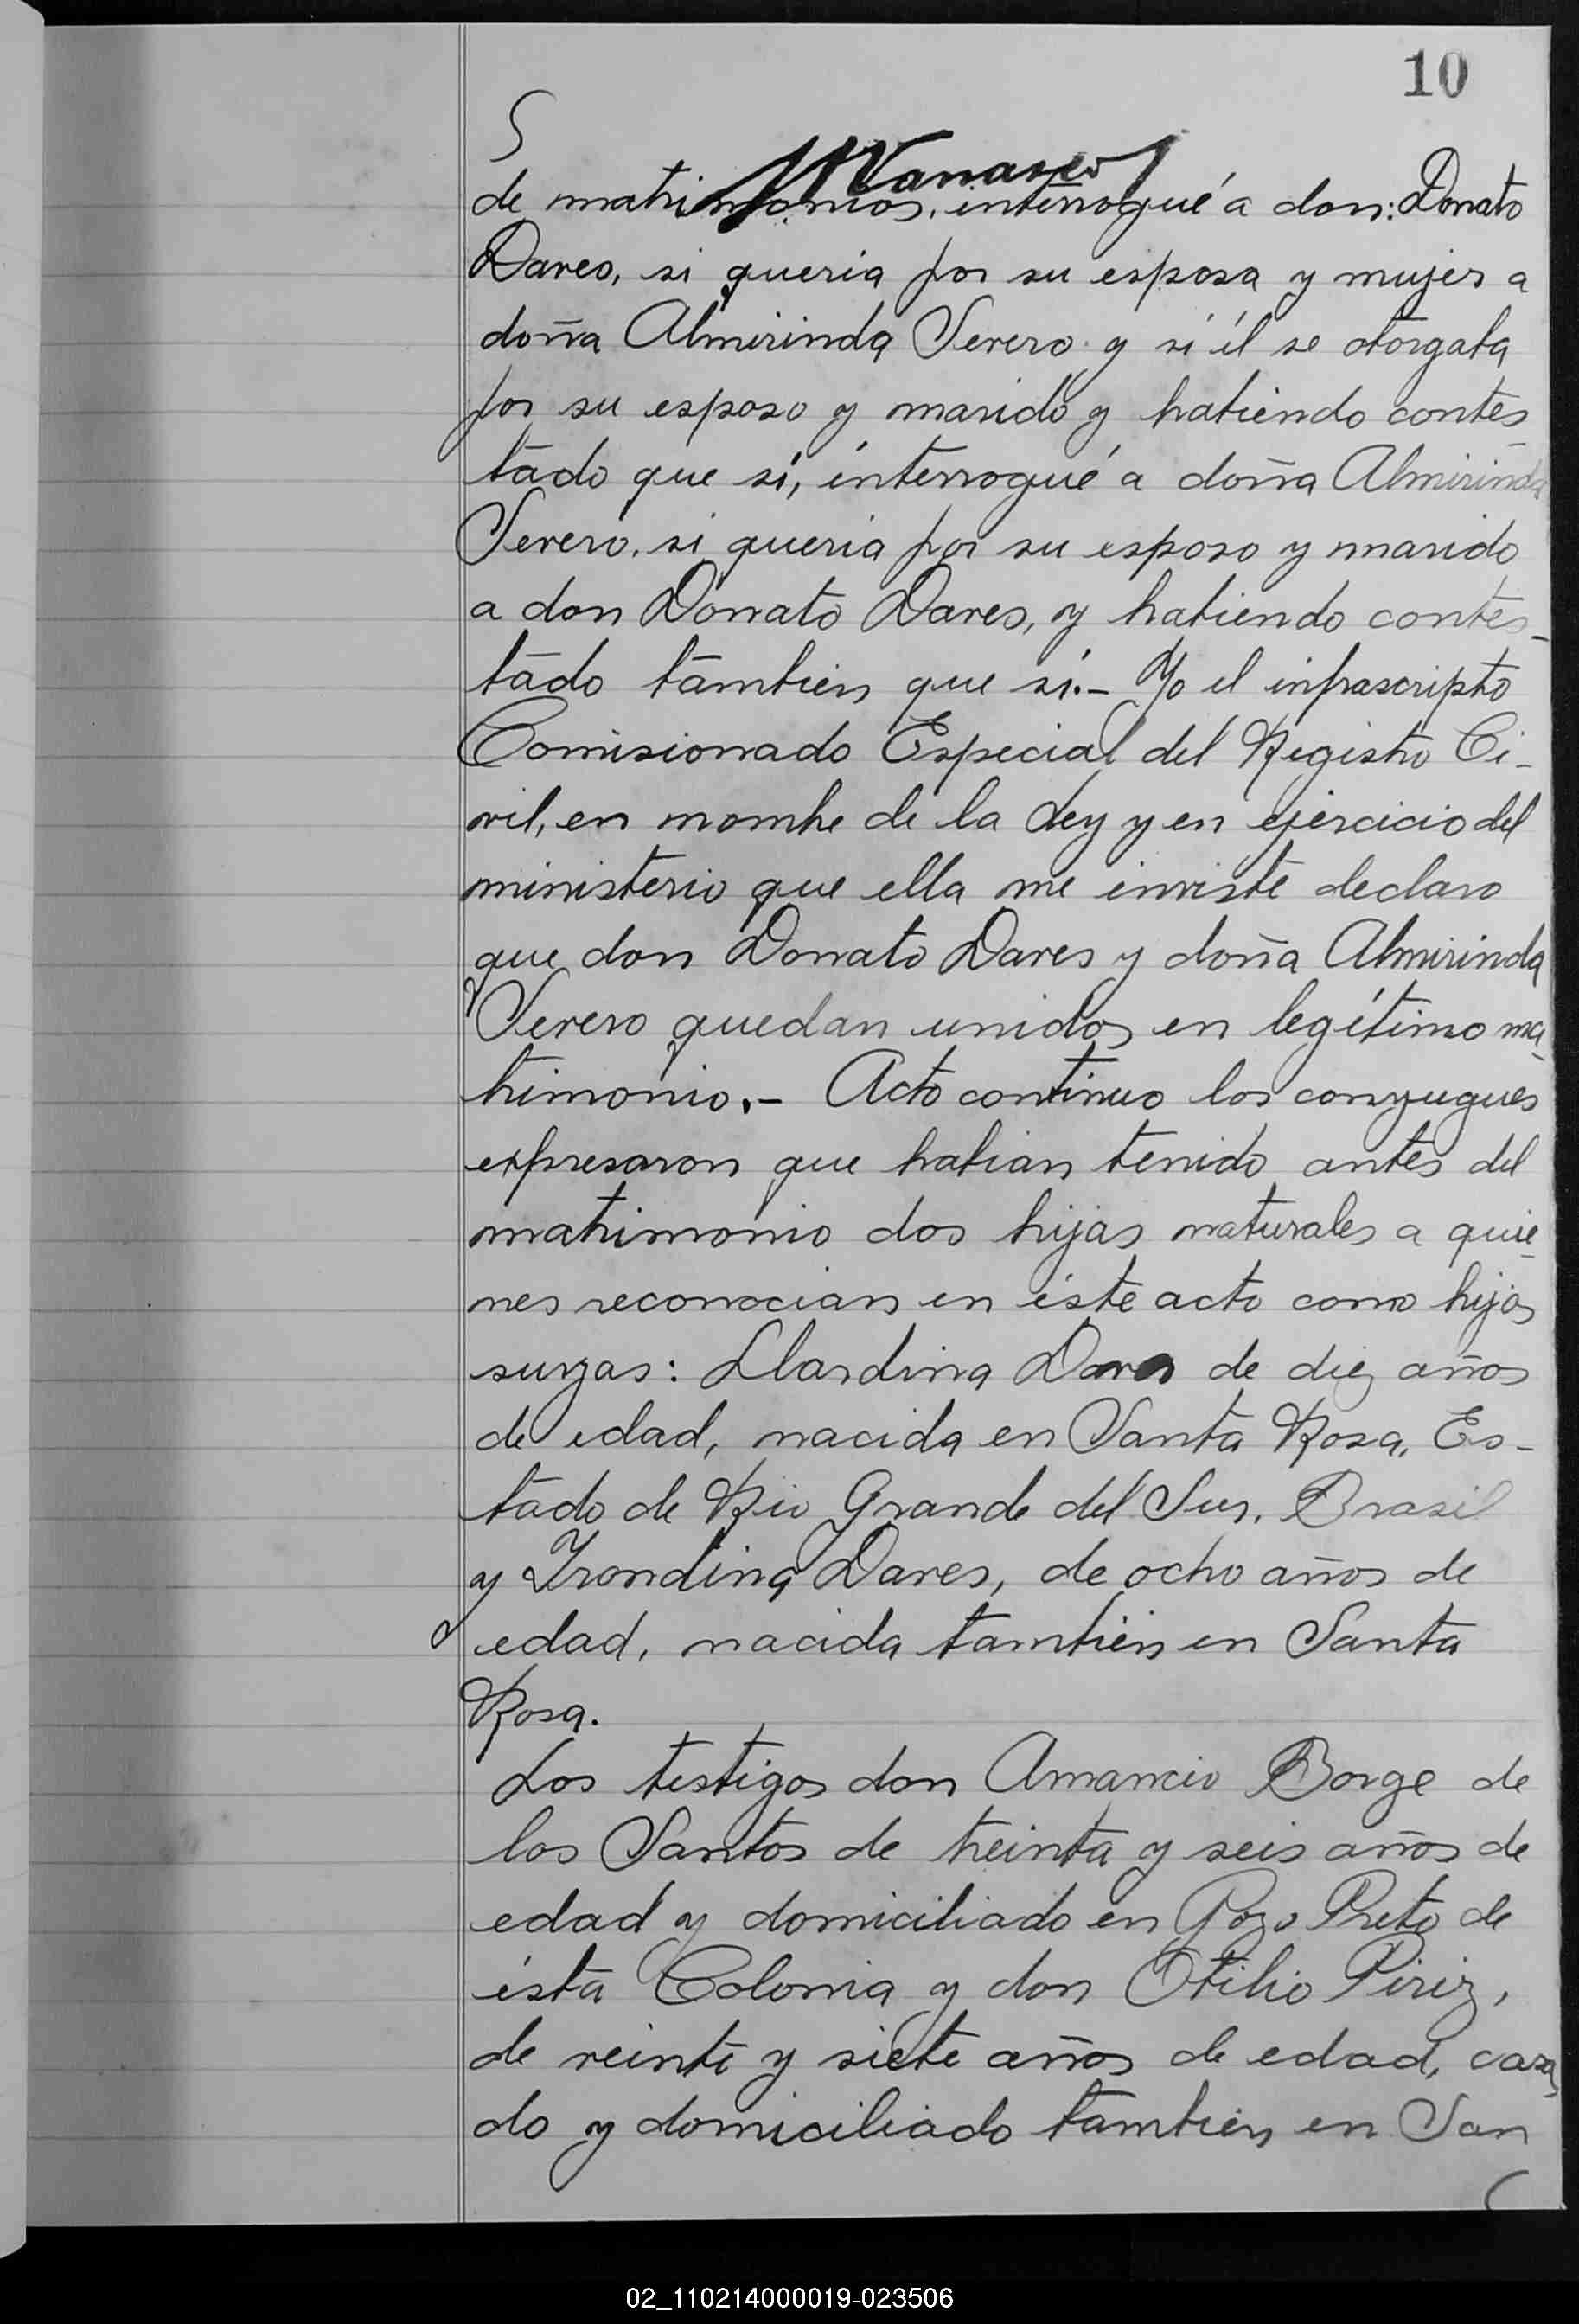 10
de matrimonios, interrogué a don: Donato
Dares, si queria por su esposa y mujer a
doña Almirinda Severo y si él se otorgaba
por su esposo y marido y habiendo contes
tado que sí, interrogué a doña Almirinda
Severo, si queria por su esposo y marido
a don Donato Dares, y habiendo contes-
tado tambien que sí.- Yo el infrascripto
Comisionado Especial del Registro Ci-
vil, en nombre de la Ley y en ejercicio del
ministerio que ella me inviste declaro
que don Donato Dares y doña Almirinda
Severo quedan unidos en legítimo ma
trimonio.- Acto continuo los conyugues
expresaron que habian tenido antes del
matrimonio dos hijas naturales a quie-
nes reconocian en éste acto como hijas
suyas: Llardina Dares de diez años
de edad, nacida en Santa Rosa, Es-
tado de Rio Grande del Sur, Brasil
y Irondina Dares, de ocho años de
edad, nacida tambien en Santa
Rosa.
Los testigos don Amancio Borge de
los Santos de treinta y seis años de
edad y domiciliado en Pozo Preto de
ésta Colonia y don Otilio Piriz,
de veinte y siete años de edad, casa
do y domiciliado tambien en San
02_110214000019-023506